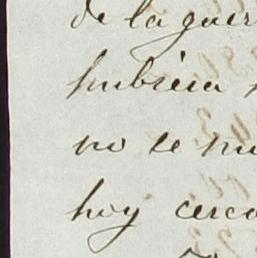 de la guer
hubiera
no se hu
hoy cerca